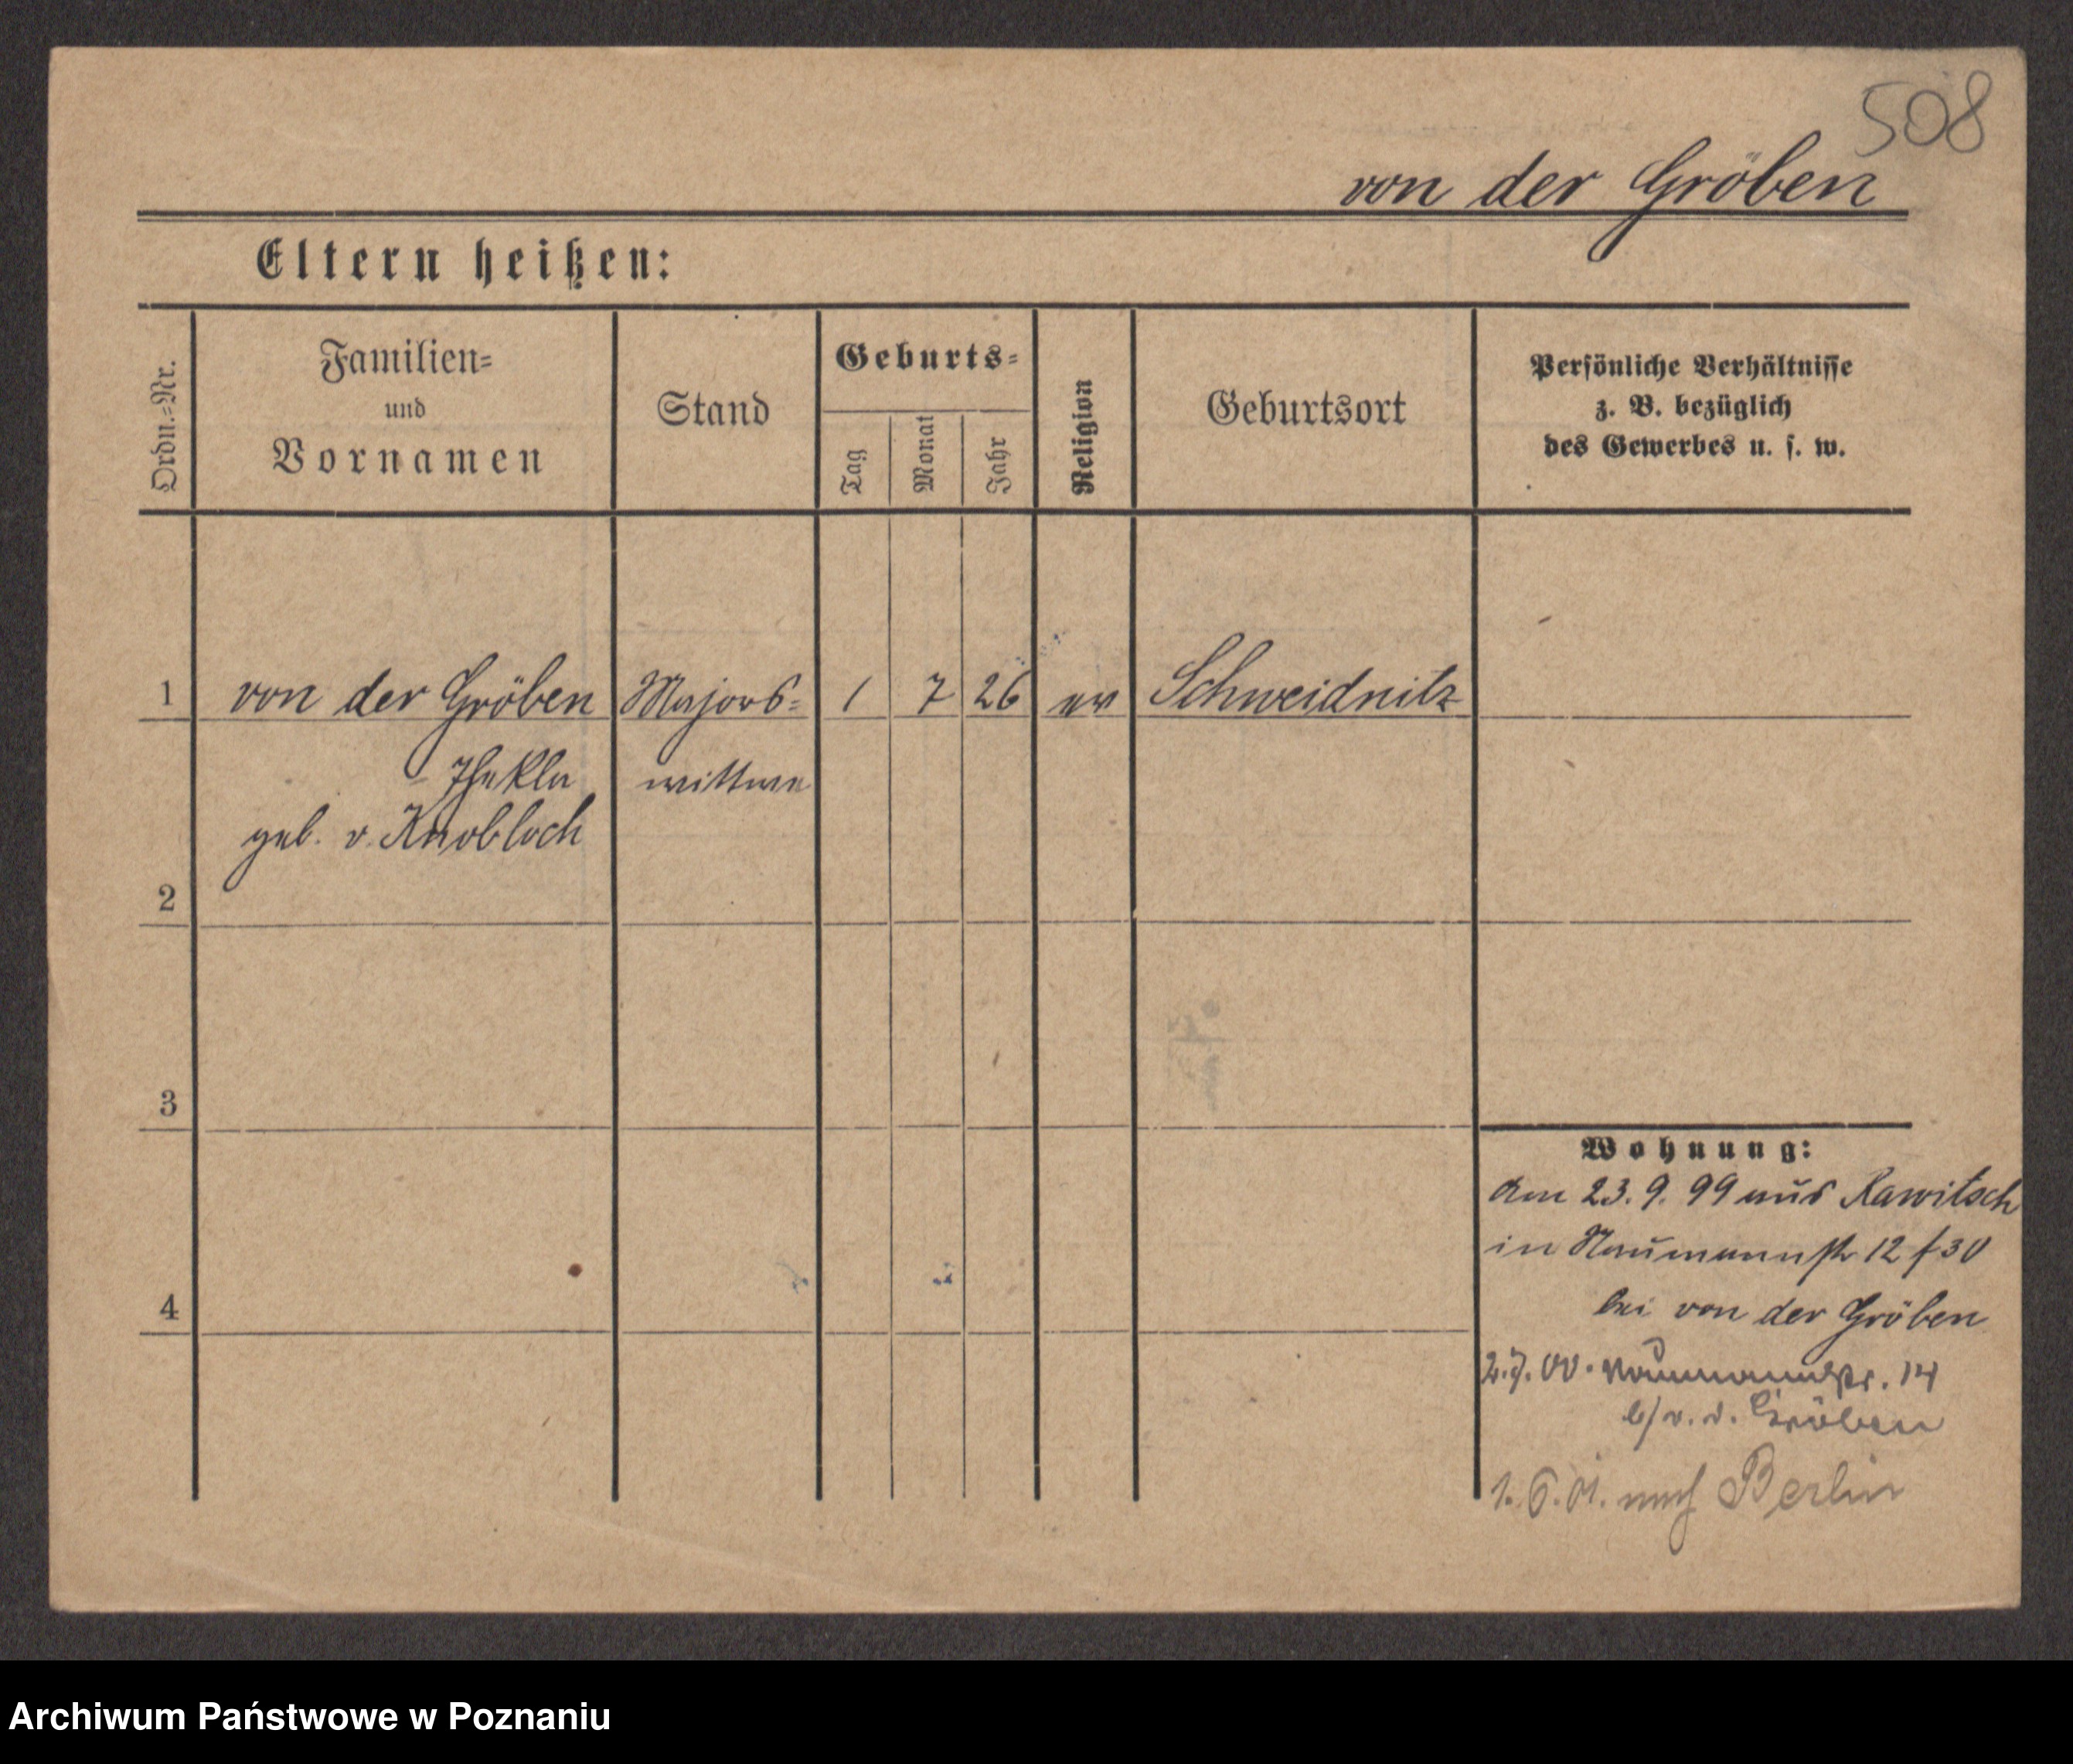 508
von der Gröben
Eltern heißen:
Ordn.-Nr.
Familien-
und
Vornamen
Stand
Geburts-
Tag
Monat
Jahr
Religion
Geburtsort
Persönliche Verhältnisse
z. B. bezüglich
des Gewerbes u. s. w.
1 von der Gröben Majors- 1 7 26 ev Schweidnitz
Thekla wittwe
geb. v. Knobloch
2
3
4
Wohnung:
Am 23. 9. 99 aus Rawitsch
in Naumannstr 12 f 30
bei von der Gröben
2.7.00. Naumannstr. 14
b/ v. d. Gröben
1. 6. 01. nach Berlin
Archiwum Państwowe w Poznaniu